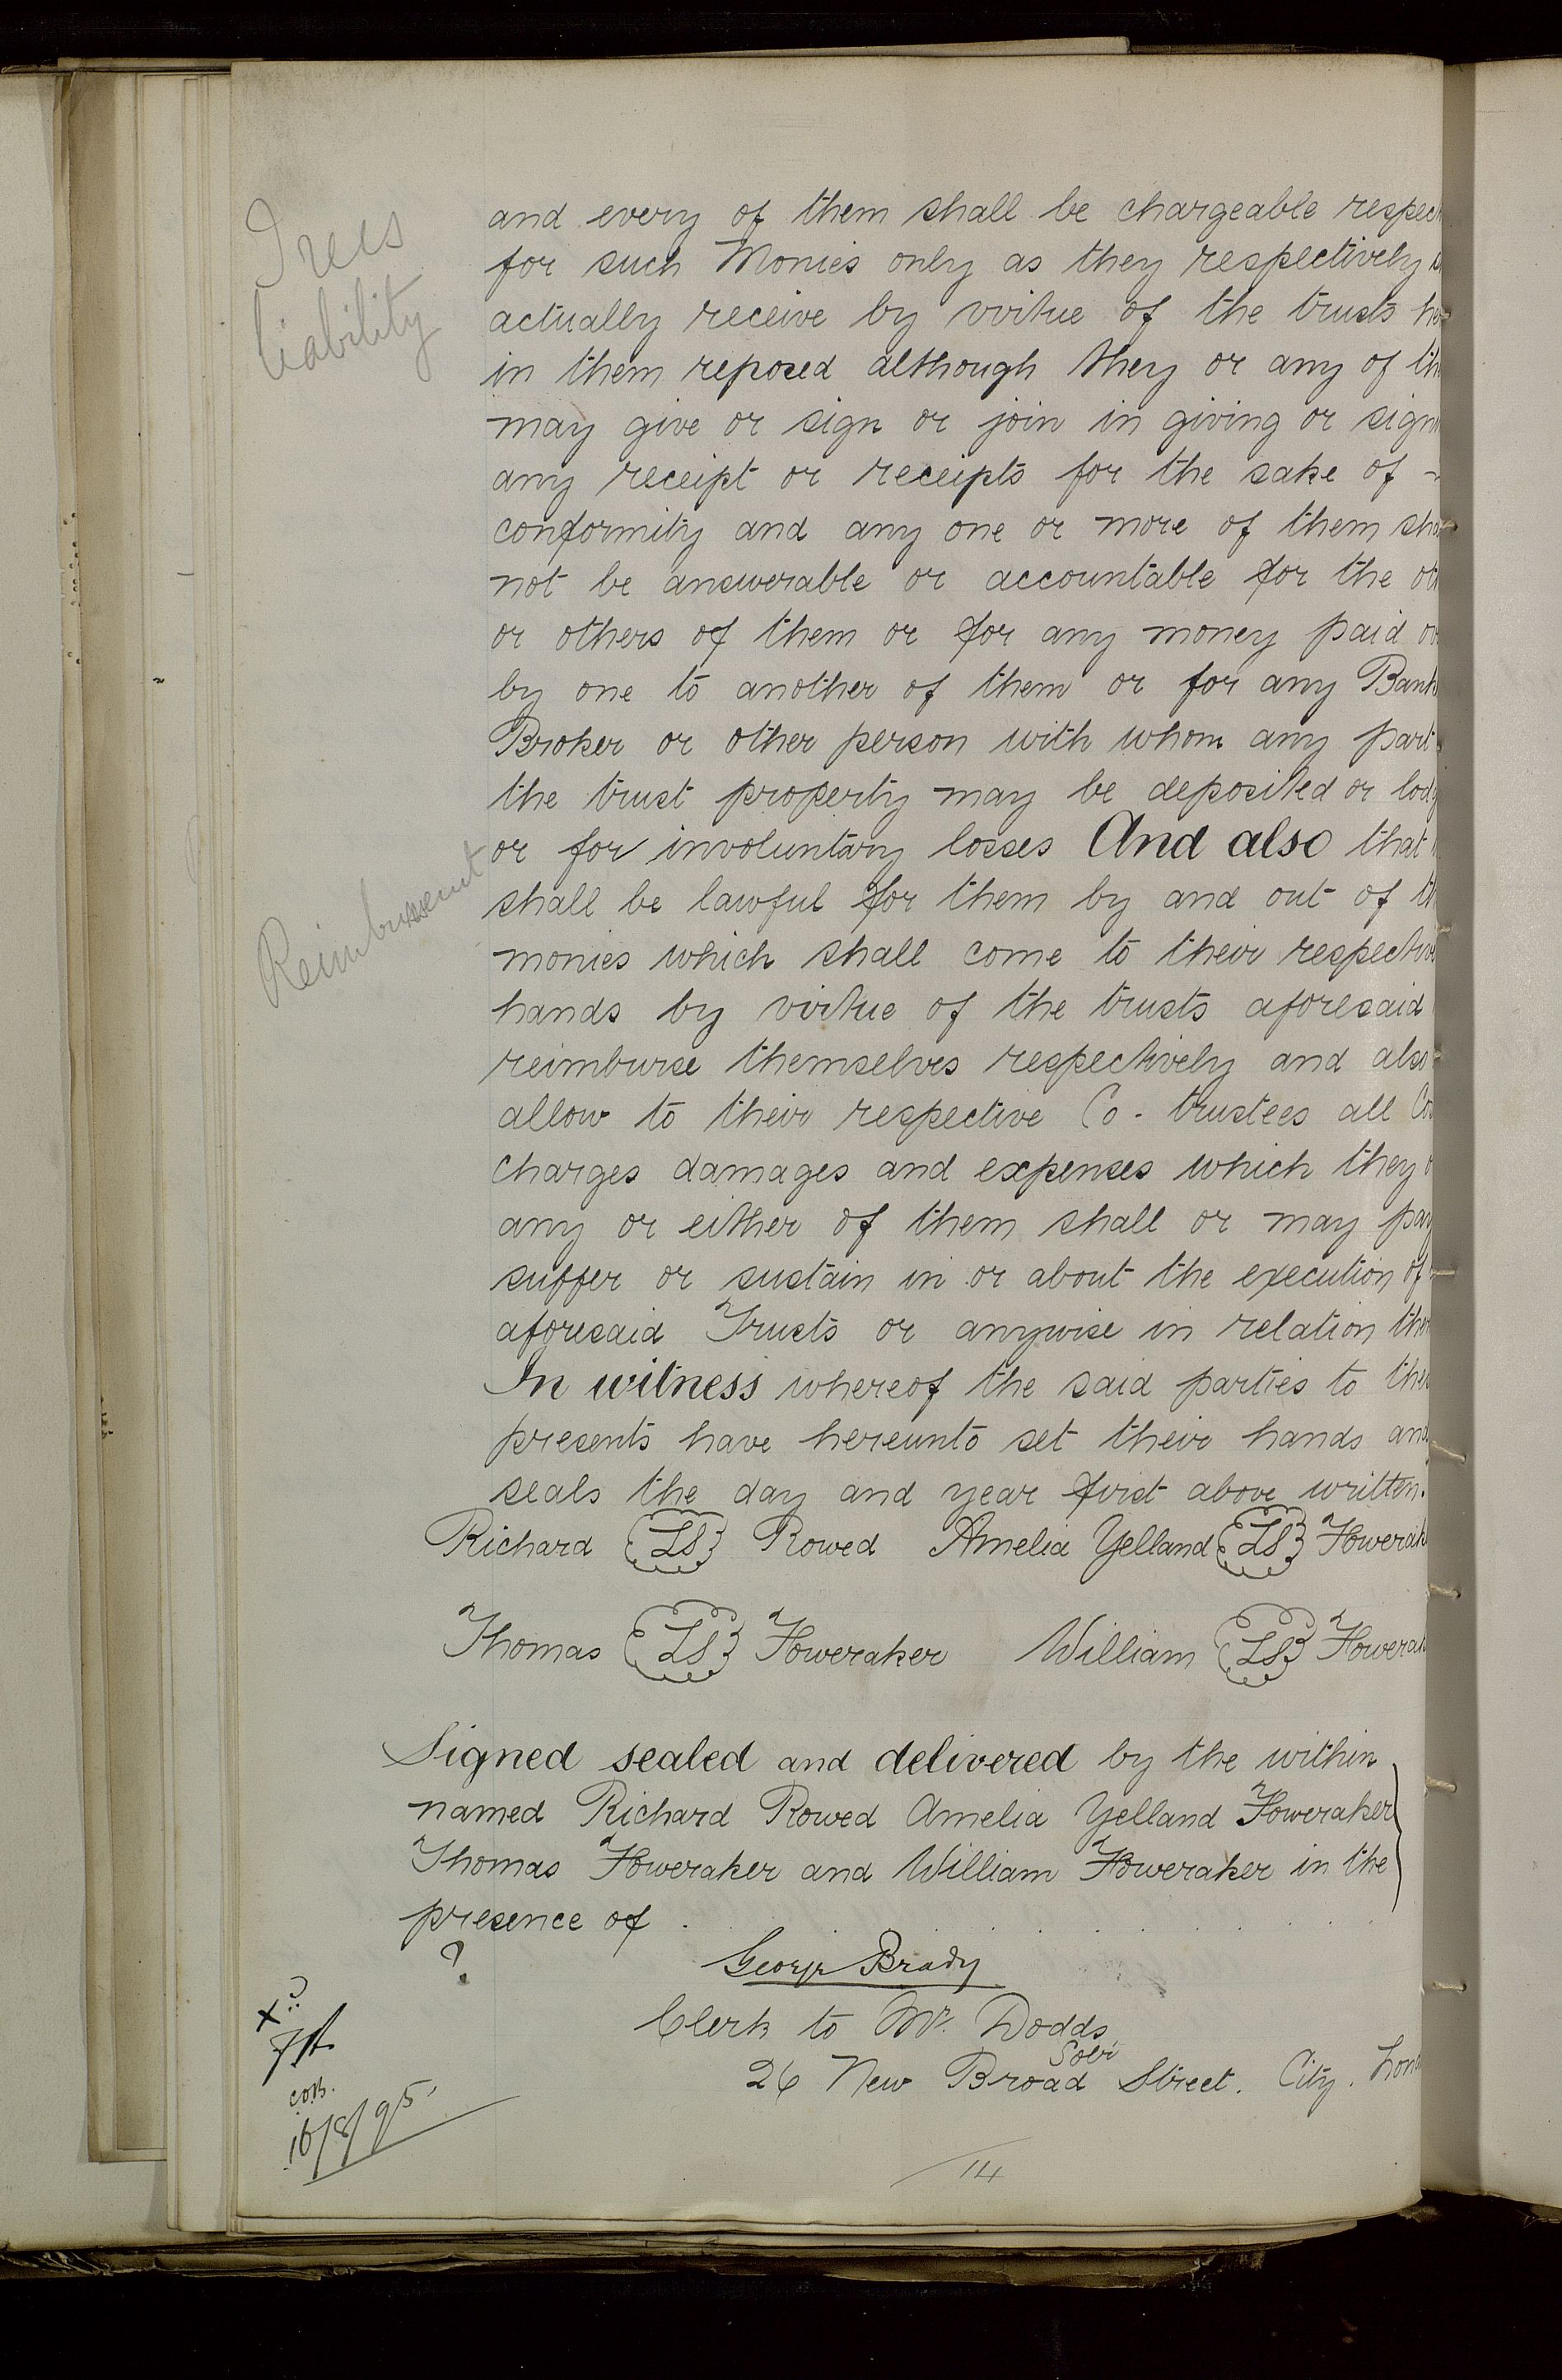 Trees
liability
and every of them shall be chargeable respec
for such Monies only as they respectively s
actually receive by virtue of the trusts he
in them reposed although they or any of th
may give or sign or join in giving or sign
any receipt or receipts for the sake of -
conformity and any one or more of them sha
not be answerable or accountable for the ot
or others of them or for any money paid ov
by one to another of them or for any Bank
Broker or other person with whom any part
the trust property may be deposited or lodg
or for involuntary losses And also that
Reimbursemt
shall be lawful for them by and out of th
monies which shall come to their respective
hands by virtue of the trusts aforesaid
reimburse themselves respectively and also
allow to their respective Co-trustees all Co
charges damages and expenses which they o
any or either of them shall or may pay
suffer or sustain in or about the execution of
aforesaid Trusts or anywise in relation ther
In witness whereof the said parties to thes
presents have hereunto set their hands and
seals the day and year first above written.
Richard LS Rowed Amelia Yelland LS Fowerak
Thomas LS Foweraker William LS Fowerak
Signed sealed and delivered by the within
named Richard Rowed Amelia Yelland Foweraker
Thomas Foweraker and William Foweraker in the
presence of
?
George Brady
Clerk to Mr. Dodds
Solr
26 New Broad Street. City. Lon
X
con.
16/8/95.
14